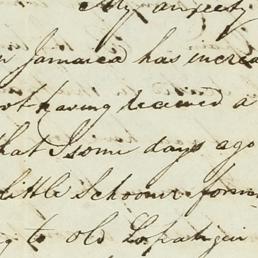 My anxiety
in Jamaica has increa
not having received a
that I some days ago
little Schooner form
to old